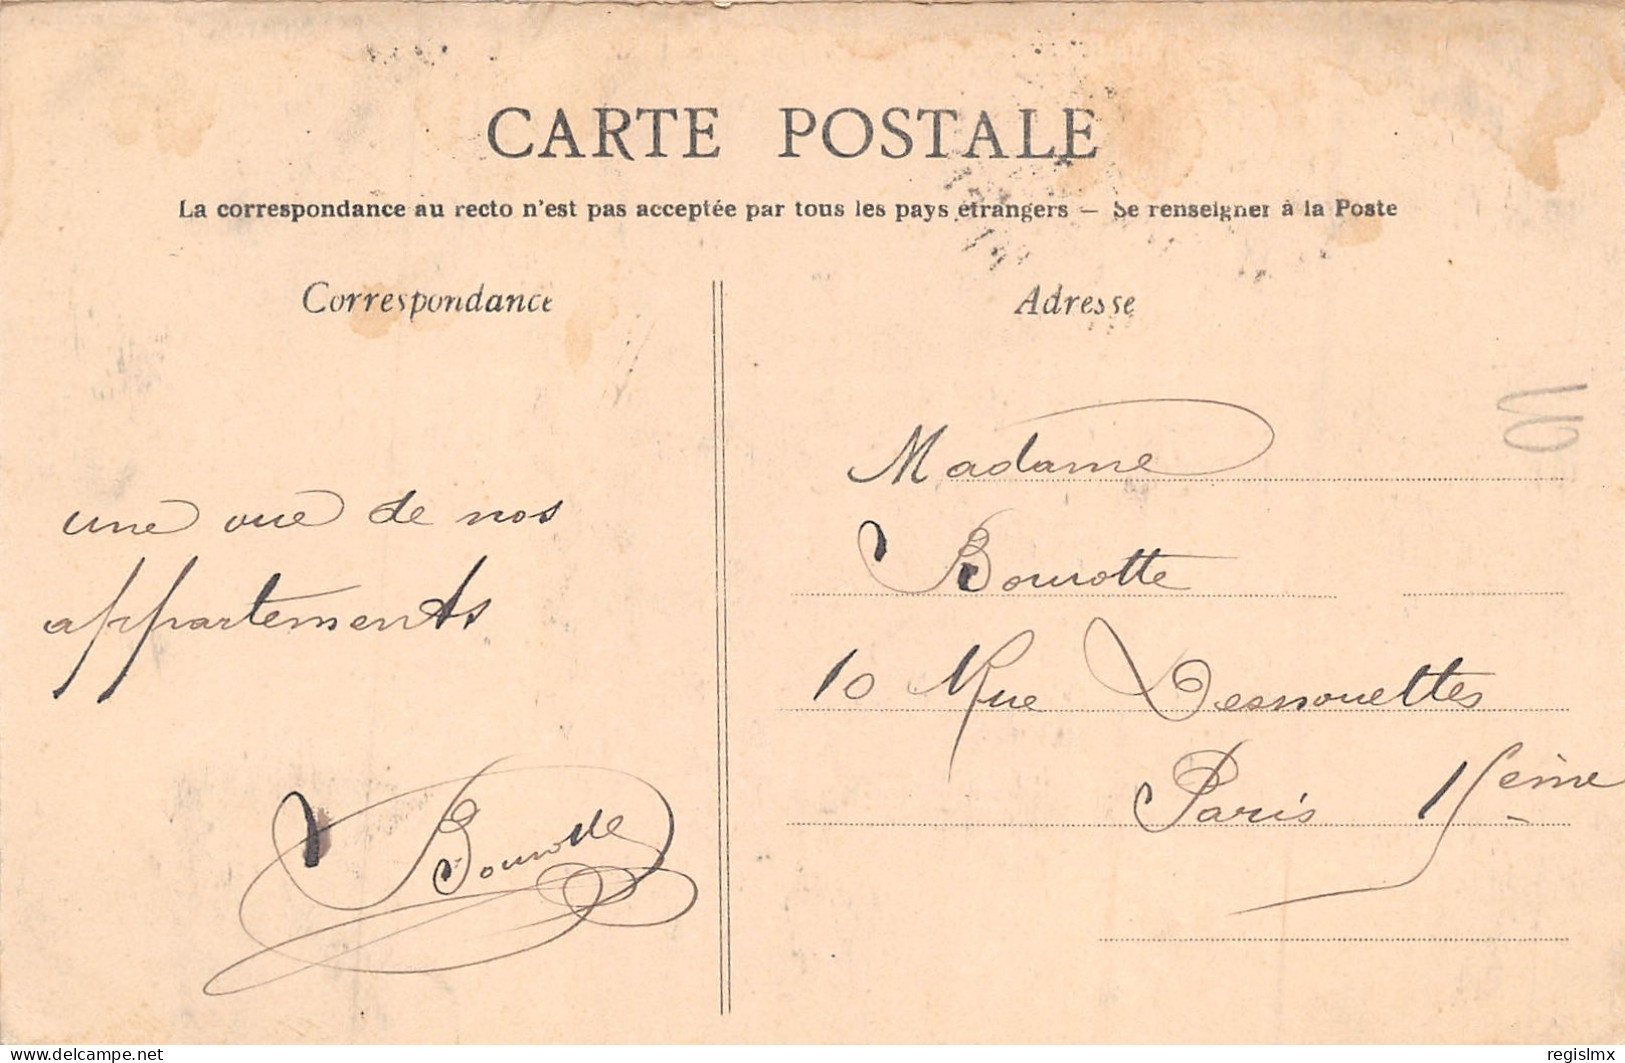 CARTE POSTALE
La correspondance au recto n'est pas acceptée par tous les pays étrangers — Se renseigner à la Poste
Correspondance
une vue de nos
appartements
Bourotte
Adresse
Madame
Bourotte
10 Rue Desnouettes
Paris 15ème
delcampe.net
regislmx